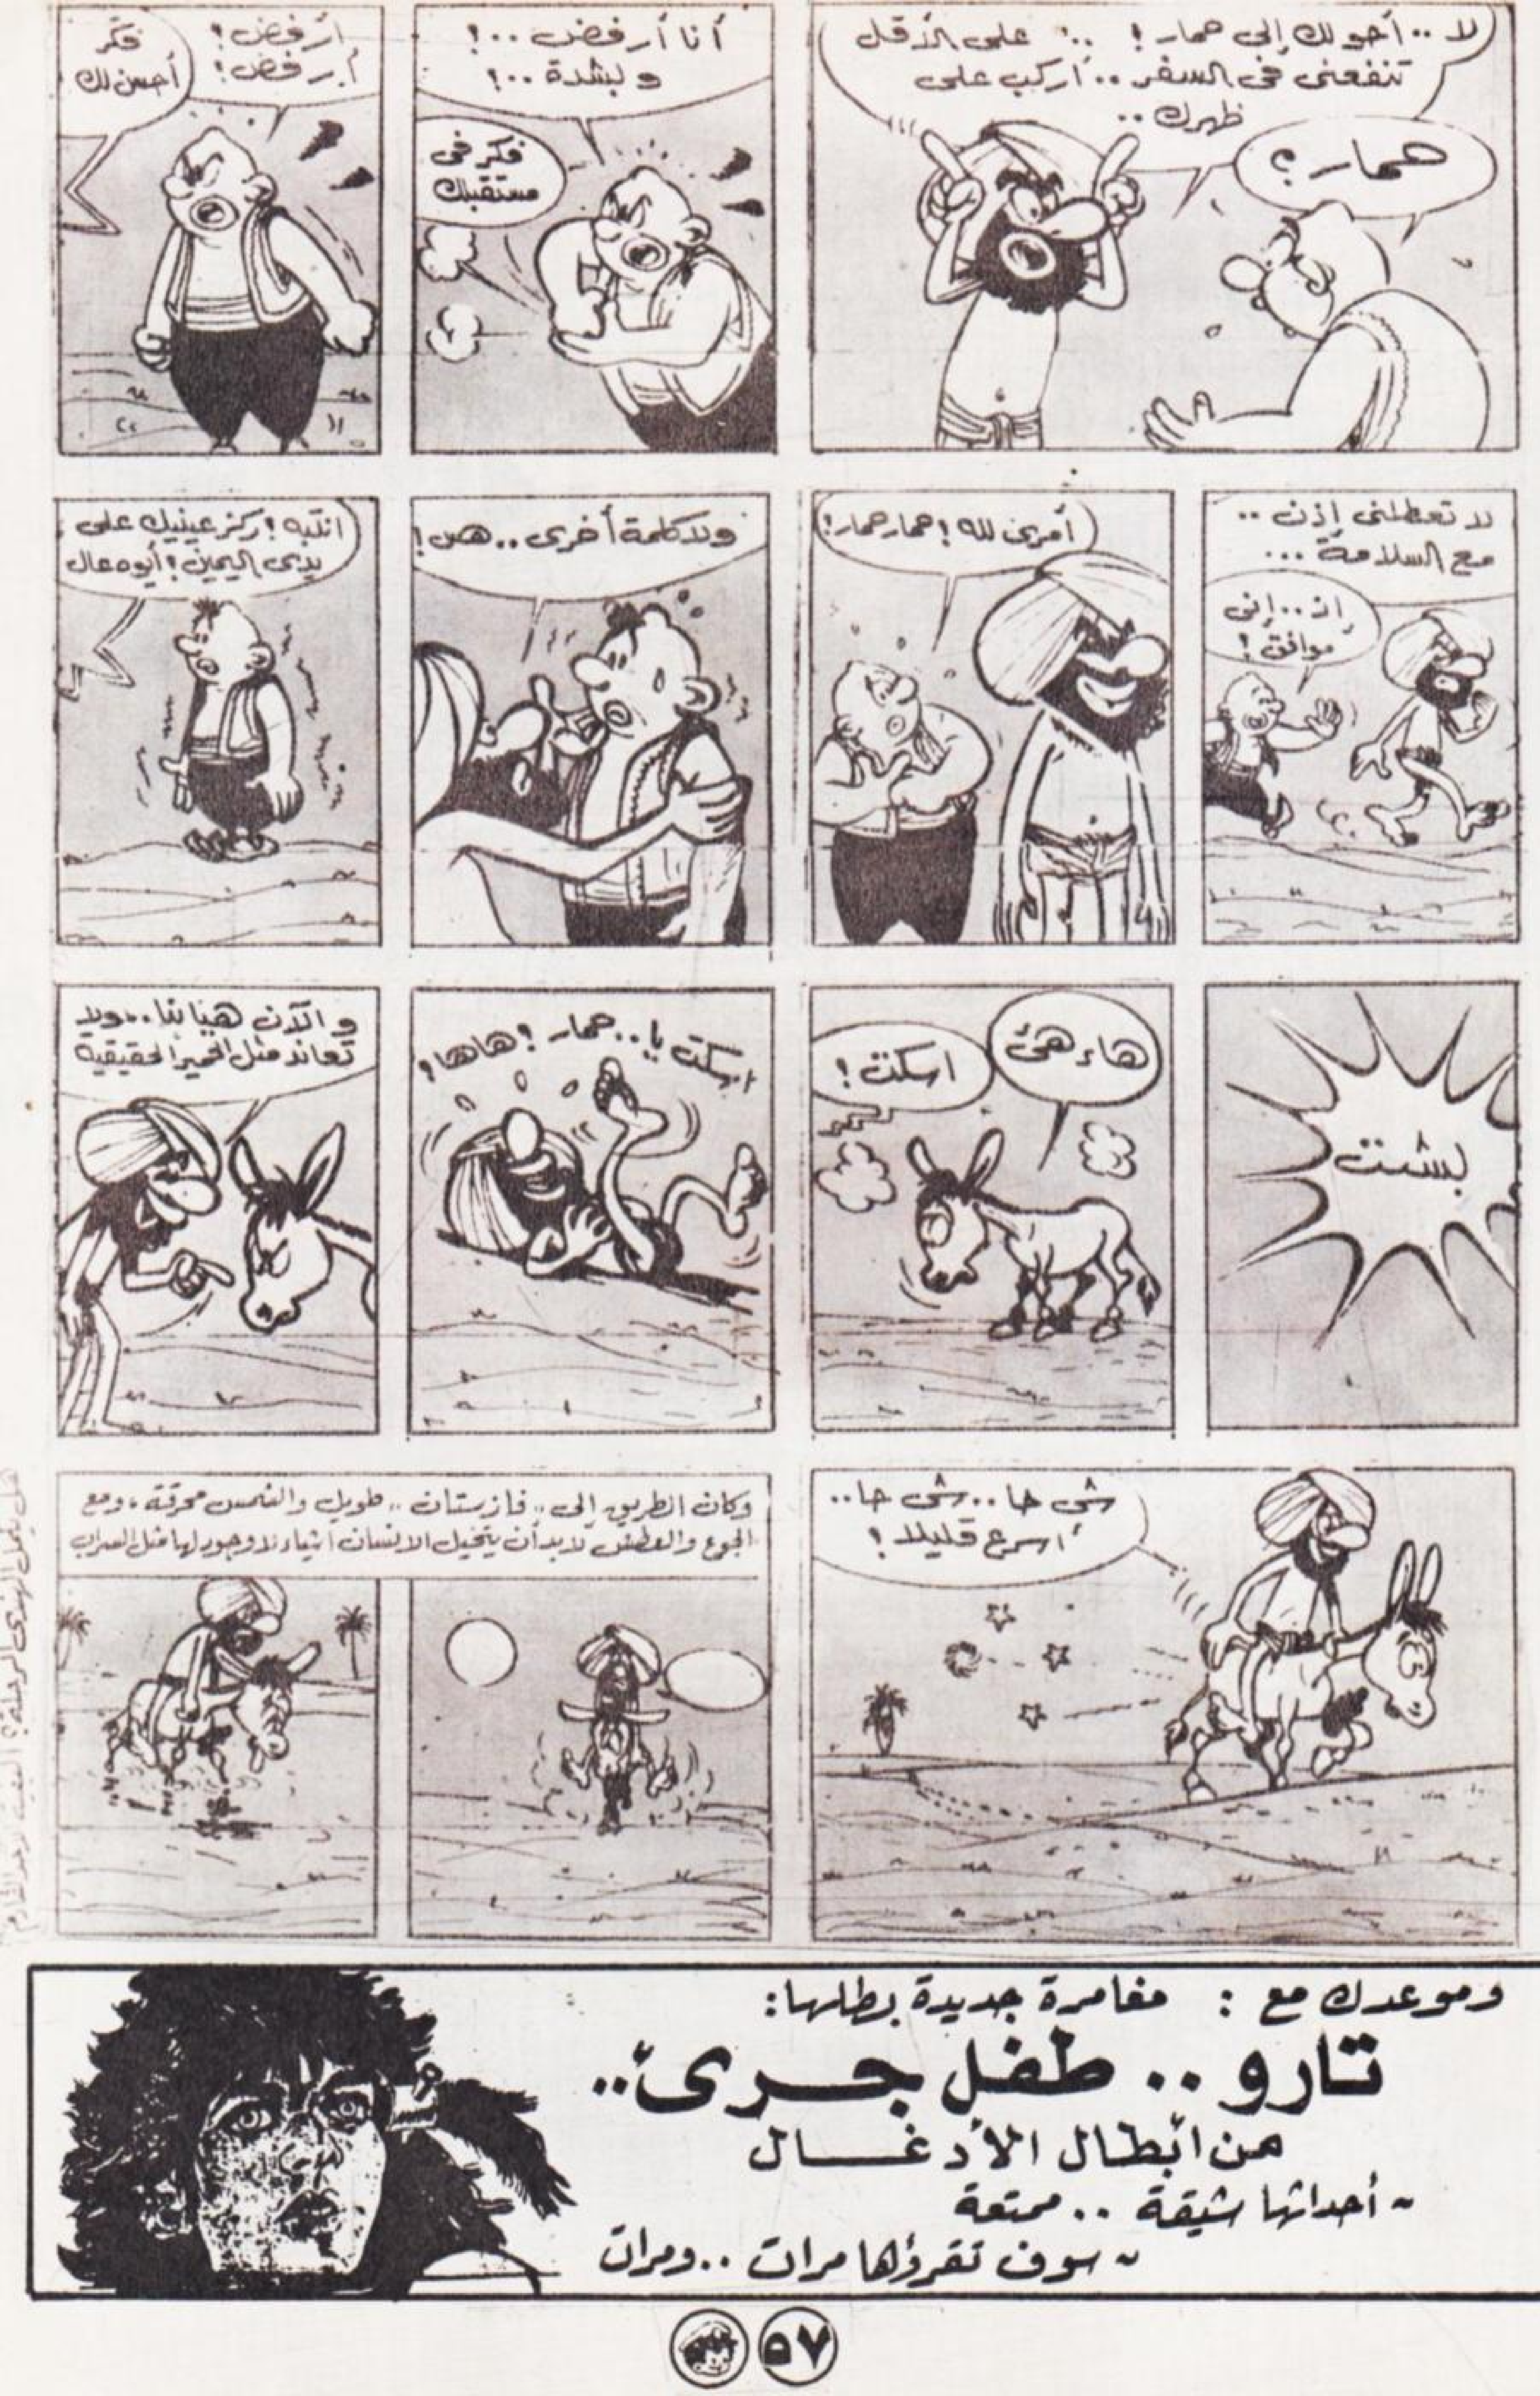 لا .. أحولك إلى حمار ! .. على الأقل
تنفعنى فى السفر .. أركب على
ظهرك ..
حمار ؟
أنا أرفض .. !
وبشدة .. !
فكر فى
مستقبلك
أرفض !
أرفض !
فكر
أحسن لك
لا تعطلنى إذن ..
مع السلامة ...
إن .. إنى
موافق !
أمرى لله ! حمار حمار !
ولا كلمة أخرى .. هس !
انتبه ! ركز عينيك على
يدى اليمين ! أيوه عال
بشت
هاء هئ
اسكت !
اسكت يا .. حمار ! هاها !
و الآن هيا بنا .. ولا
تعاند مثل الحمير الحقيقية
شى حا .. شى حا ..
أسرع قليلا !
وكان الطريق إلى .. فازستان .. طويل والشمس محرقة ، ومع
الجوع والعطش لابد أن يتخيل الانسان أشياء لا وجود لها مثل السراب
هل يكمل الهندى الرحلة ؟ البقية العدد القادم
وموعدك مع : مغامرة جديدة بطلها :
تارو .. طفل جرىء ..
من أبطال الأدغال
~ أحداثها شيقة .. ممتعة
~ سوف تقرؤها مرات .. ومرات
٥٧